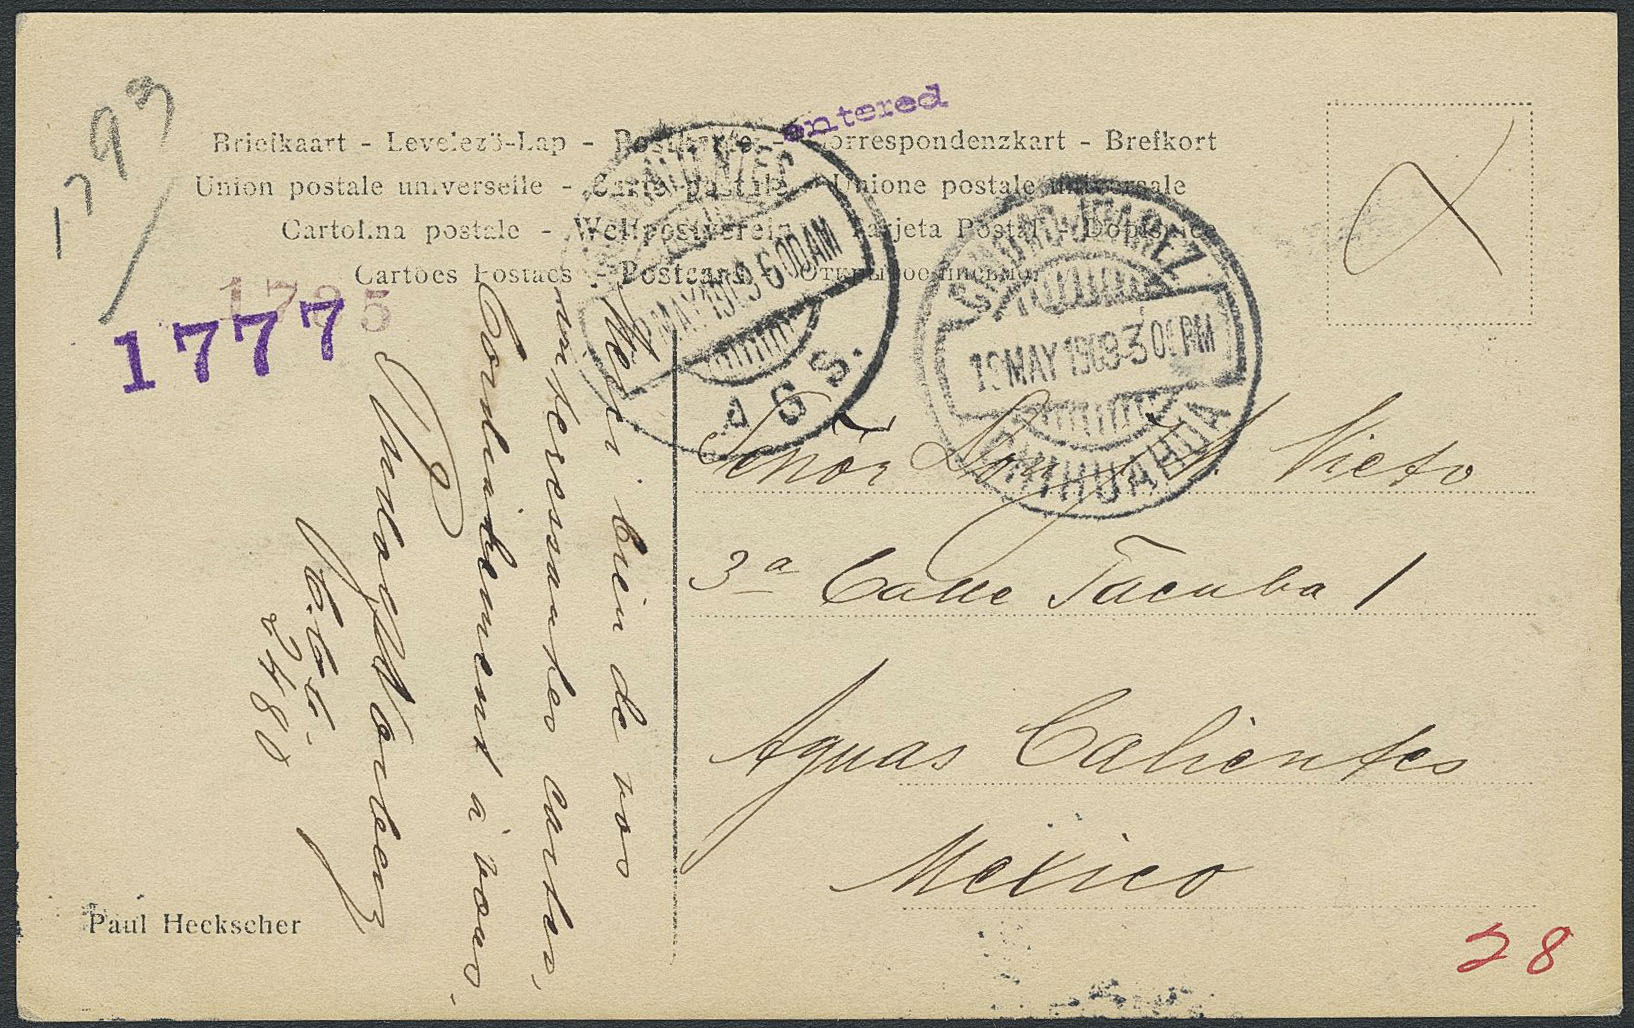 1793
entered
Briefkaart - Levelezö-Lap - Postkarte - Correspondenzkart - Brefkort
Union postale universelle - Carte postale - Unione postale universale
Cartolina postale - Weltpostverein - Tarjeta Postal - Dopisnice
Cartões Postaes - Postcard - Открытое письмо
1777
AGUASCALIENTES
MAY 190 6 00 AM
AGS.
CIUDAD JUAREZ
19 MAY 1908 3 00 PM
CHIHUAHUA
Merci bien de vos
interessantes cartes,
Cordialement à vous.
C.C.C.
2480
Señor Don Nieto
3a Calle Tacuba 1
Aguas Calientes
Mexico
Paul Heckscher
28